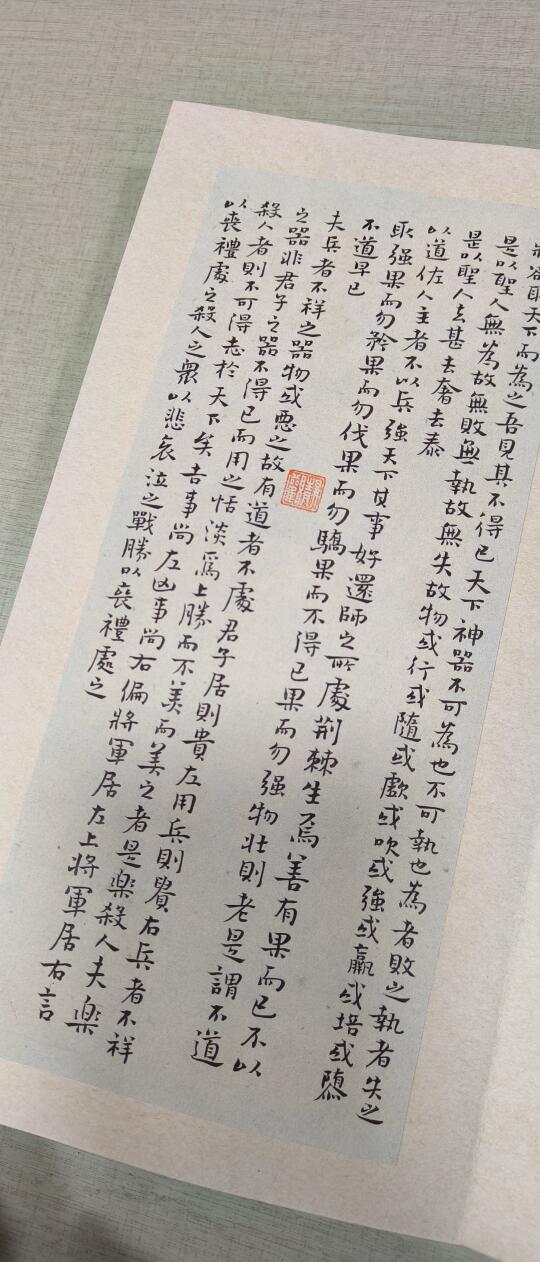 欲取天下而為之吾見其不得已天下神器不可為也不可執也為者敗之執者失之
是以聖人無為故無敗無執故無失故物或行或隨或歔或吹或強或羸或培或隳
是以聖人去甚去奢去泰
以道佐人主者不以兵強天下其事好還師之所處荊棘生焉善有果而已不以
取强果而勿矜果而勿伐果而勿驕果而不得已果而勿强物壯則老是謂不道
不道早已
夫兵者不祥之器物或惡之故有道者不處君子居則貴左用兵則貴右兵者不祥
之器非君子之器不得已而用之恬淡爲上勝而不美而美之者是樂殺人夫樂
殺人者則不可得志於天下矣吉事尚左凶事尚右偏將軍居左上將軍居右言
以喪禮處之殺人之眾以悲哀泣之戰勝以喪禮處之